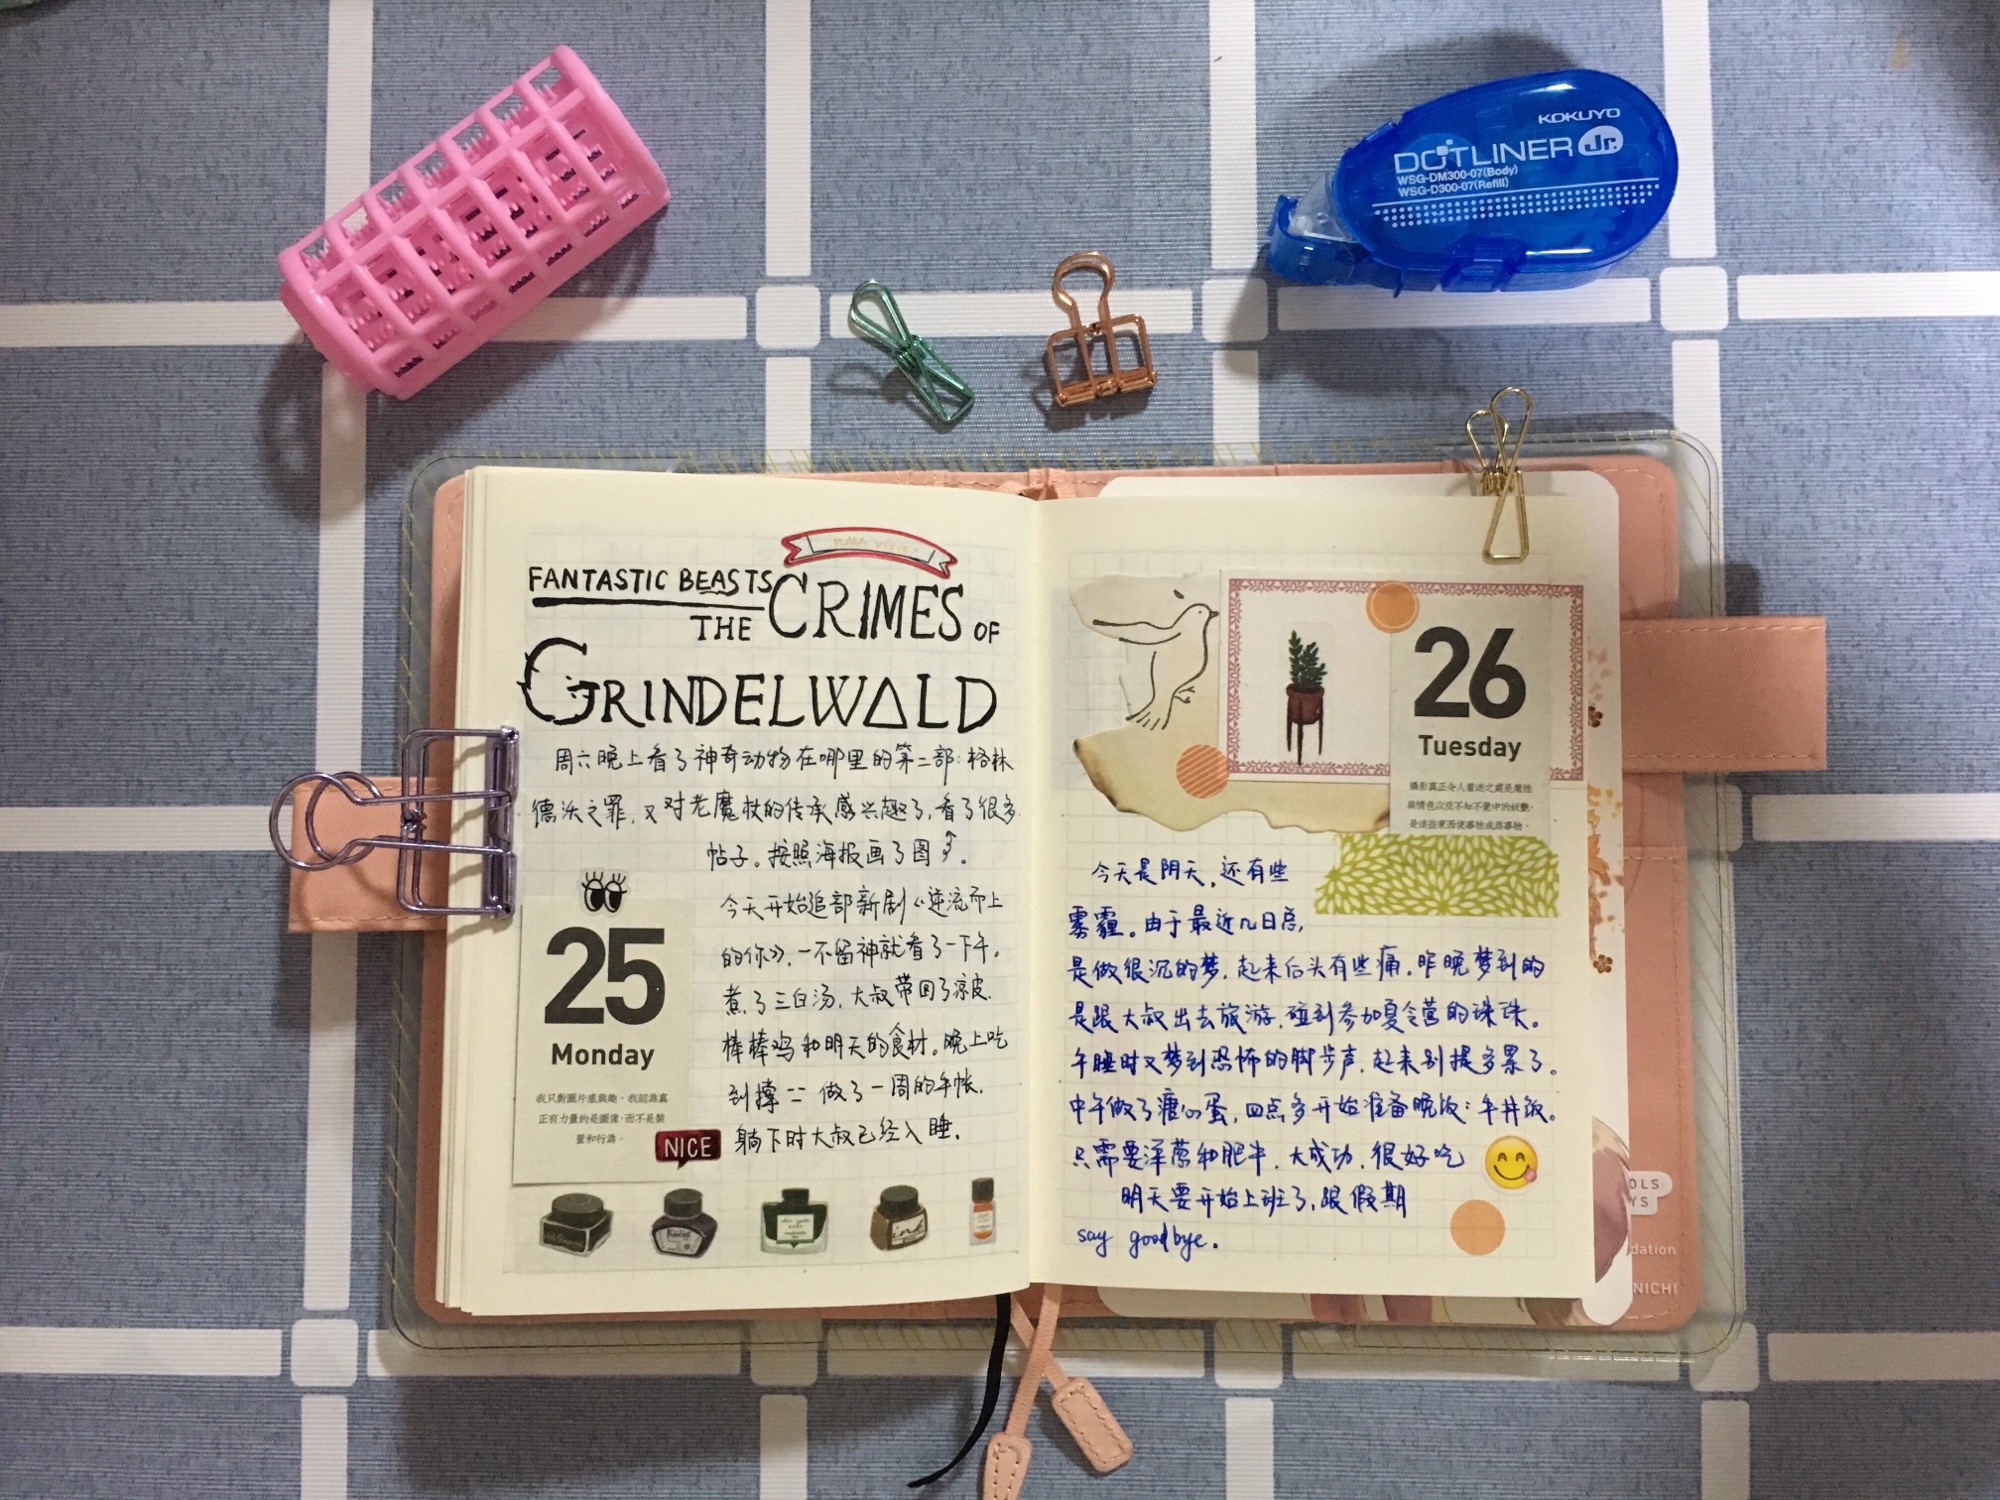 KOKUYO
DOTLINER Jr.
WSG-DM300-07(Body)
WSG-D300-07(Refill)
FANTASTIC BEASTS
THE CRIMES OF
GRINDELWALD
周六晚上看了神奇动物在哪里的第二部:格林
德沃之罪,又对老魔杖的传承感兴趣了,看了很多
帖子。按照海报画了图。
今天开始追部新剧《逆流而上
的你》,一不留神就看了一下午。
煮了三白汤,大叔带回了凉皮,
棒棒鸡和明天的食材。晚上吃
到撑 做了一周的手帐,
躺下时大叔已经入睡。
25
Monday
我只對圖片感興趣。我認為真
正有力量的是圖像,而不是裝
置和行為。
NICE
ink
26
Tuesday
攝影真正令人着迷之處是魔性
與情色以及不知不覺中的妖艷,
是這些東西使事物成為事物。
今天是阴天,还有些
雾霾。由于最近几日总
是做很沉的梦,起来后头有些痛。昨晚梦到的
是跟大叔出去旅游,碰到参加夏令营的珠珠。
午睡时又梦到恐怖的脚步声,起来别提多累了。
中午做了溏心蛋,四点多开始准备晚饭:牛井饭。
只需要洋葱和肥牛,大成功,很好吃
明天要开始上班了,跟假期
say goodbye.
OLS
YS
dation
NICHI